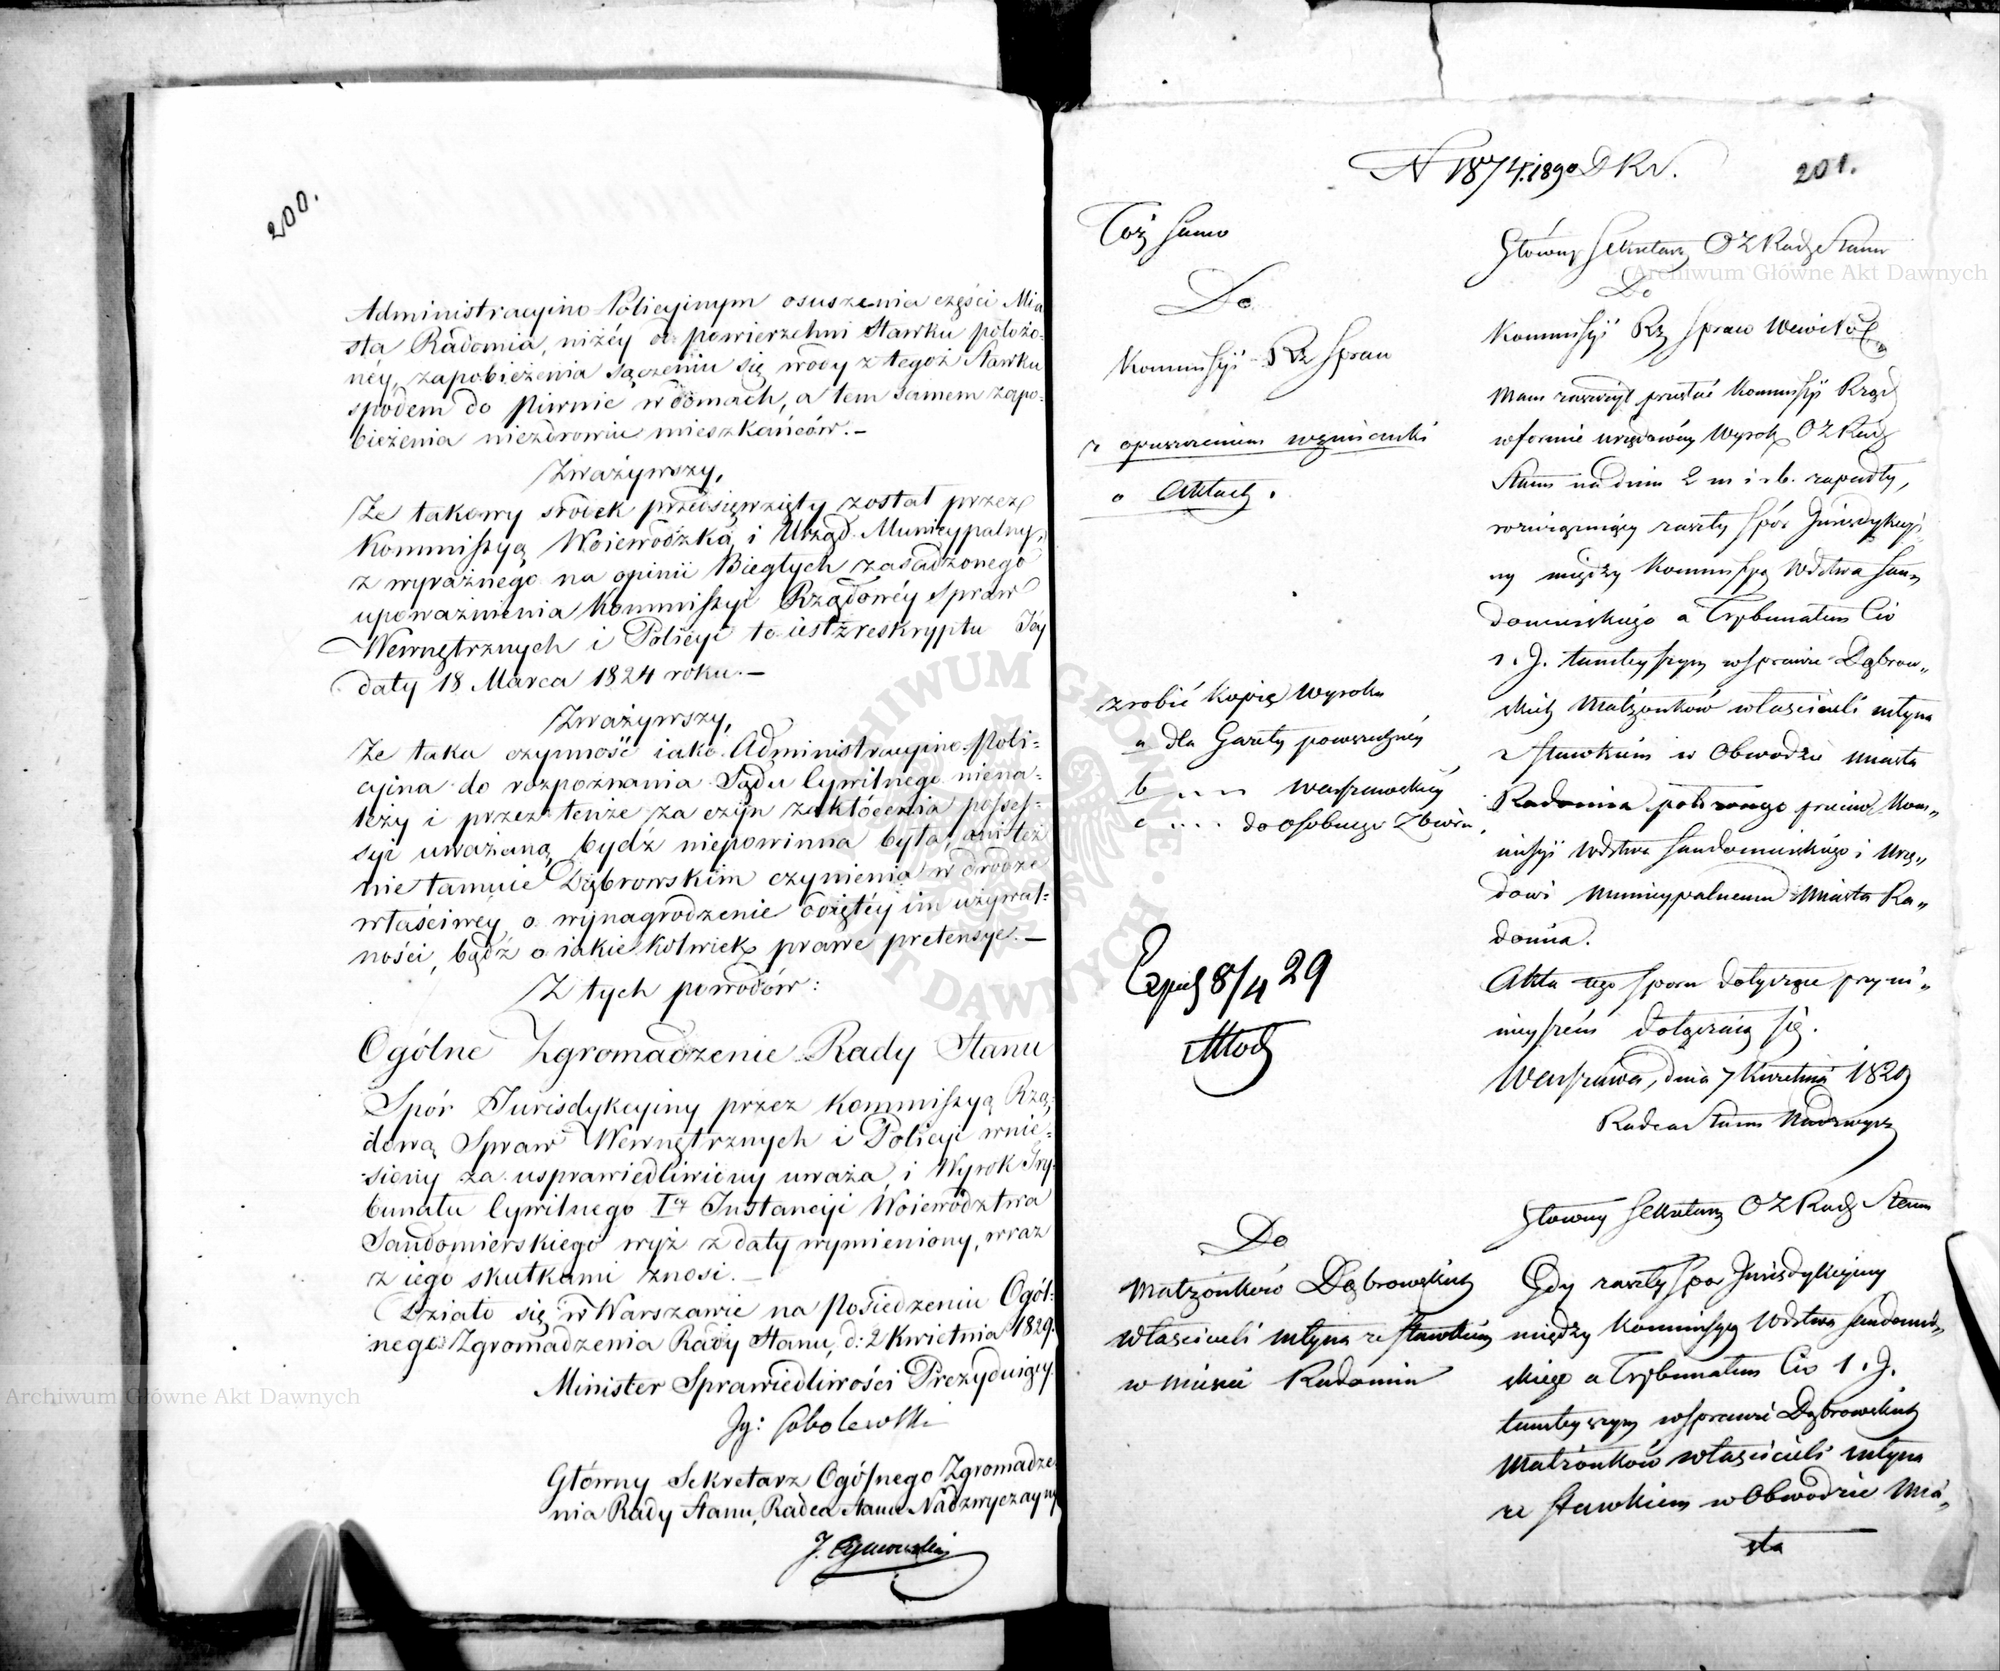 200.
Administracyino-Policyinym osuszenia części Mia
sta Radomia, niżéy od powierzchni Stawku położo-
néy, zapobieżenia sączeniu się wody z tegoż Stawku
spodem do piwnic w domach, a tem samem zapo-
bieżenia niezdrowiu mieszkańców.—
Zważywszy,
Że takowy środek przedsięwzięty został przez
Kommissyą Woiewódzką i Urząd Municypalny,
z wyraźnego na opinii Biegłych zasadzonego
upoważnienia Kommissyi Rządowéy Spraw
Wewnętrznych i Policyi to iest z reskryptu Jéy
daty 18 Marca 1824 roku.—
Zważywszy,
Że taka czynność iako Administracyino-Poli-
cyina do rozpoznania Sądu Cywilnego niena-
leży i przez tenże za czyn zakłócenia posses-
syi uważaną bydź niepowinna była, ani też
nie tamuie Dąbrowskim czynienia w drodze
właściwéy o wynagrodzenie odiętéy im używal-
ności, bądź o iakie kolwiek prawe pretensye.—
Z tych powodów:
Ogólne Zgromadzenie Rady Stanu
Spór Jurisdykcyiny przez Kommissyą Rzą-
dową Spraw Wewnętrznych i Policyi wnie-
siony za usprawiedliwiony uważa i Wyrok Try-
bunału Cywilnego Iéy Instancyi Woiewództwa
Sandomierskiego wyż z daty wymieniony, wraz
z iego skutkami znosi.—
Działo się w Warszawie na Posiedzeniu Ogól-
nego Zgromadzenia Rady Stanu, d: 2 Kwietnia 1829.
Minister Sprawiedliwości Prezyduiący.
Ig: Sobolewski
Główny Sekretarz Ogólnego Zgromadze-
nia Rady Stanu, Radca Stanu Nadzwyczayny
J.
N 1874. 1890 D Kr.
201.
Toż samo
Do
Kommissyi Rz Spraw
z opuszczeniem wzmianki
o Aktach.
zrobić kopię Wyroku
a dla Gazety powszechnéy
b - - - Warszawskiéy
c - - - do osobnego Zbioru
8/4 29
Do
Małżonków Dąbrowskich
właścicieli młyna ze stawkiem
w mieście Radomiu
Główny Sekretarz OZ Rady Stanu
Do
Kommissyi Rz Spraw Wew i Pol
Mam zaszczyt przesłać Kommissyi Rząd
w formie urzędowéy Wyrok OZ Rady
Stanu na dniu 2 m i r b. zapadły,
rozwiązuiący zaszły spór Jurisdykcyi
ny między Kommissyą Wdztwa San
domirskiego a Trybunałem Cio
1. J. tamteyszym w sprawie Dąbrow„
skich Małżonków właścicieli młyna
z Stawkiem w Obwodzie miasta
Radomia położonego przeciw Kom„
missyi Wdztwa Sandomirskiego i Urzę„
dowi Municypalnemu Miasta Ra„
domia.
Akta tego sporu dotyczące przy ni„
nieyszém dołączaią się.
Warszawa, dnia 7 Kwietnia 1829
Radca Stanu Nadzwycz
Główny Sekretarz OZ Rady Stanu
Gdy zaszły spór Jurisdykcyiny
między Kommissyą Wdztwa Sandomir„
skiego a Trybunałem Cio 1. J.
tamteyszym w sprawie Dąbrowskich
Małżonków właścicieli młyna
ze stawkiem w Obwodzie Mia„
sta
Archiwum Główne Akt Dawnych
Archiwum Główne Akt Dawnych
ARCHIWUM GŁÓWNE AKT DAWNYCH